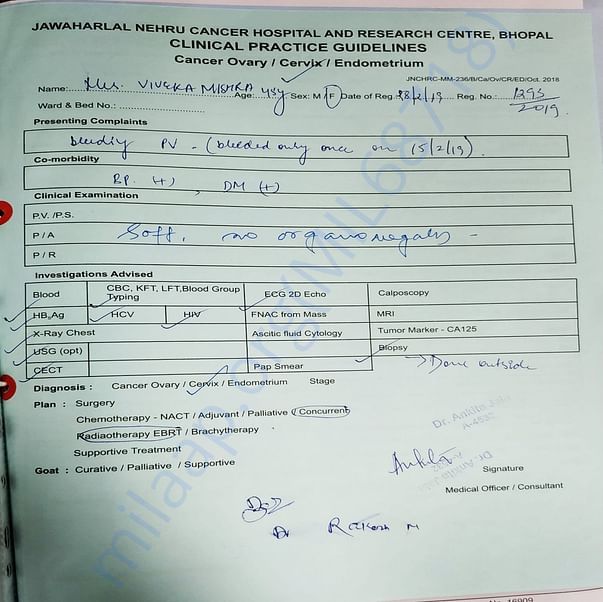 JAWAHARLAL NEHRU CANCER HOSPITAL AND RESEARCH CENTRE, BHOPAL
CLINICAL PRACTICE GUIDELINES
Cancer Ovary / Cervix / Endometrium
JNCHRC-MM-236/B/Ca/Ov/CR/ED/Oct. 2018
Name: Mrs. VIVEKA MISHRA Age: 45y Sex: M / F Date of Reg.: 28/2/19 Reg. No.: 1295/2019
Ward & Bed No.:
Presenting Complaints
bleeding PV - (bleeded only once on 15/2/19).
Co-morbidity
BP (+), DM (+)
Clinical Examination
P.V. /P.S.
P / A Soft, no organomegaly -
P / R
Investigations Advised
Blood CBC, KFT, LFT,Blood Group Typing ECG 2D Echo Calposcopy
HB,Ag HCV HIV FNAC from Mass MRI
X-Ray Chest Ascitic fluid Cytology Tumor Marker - CA125
USG (opt) Biopsy
CECT Pap Smear → Done outside
Diagnosis : Cancer Ovary / Cervix / Endometrium Stage
Plan : Surgery
Chemotherapy - NACT / Adjuvant / Palliative / Concurrent
Radiaotherapy EBRT / Brachytherapy
Supportive Treatment
Dr. Ankita
Goat : Curative / Palliative / Supportive
Ankita
Signature
Medical Officer / Consultant
Dr Rakesh M
No. 16909
milaap.org/MIL68718)